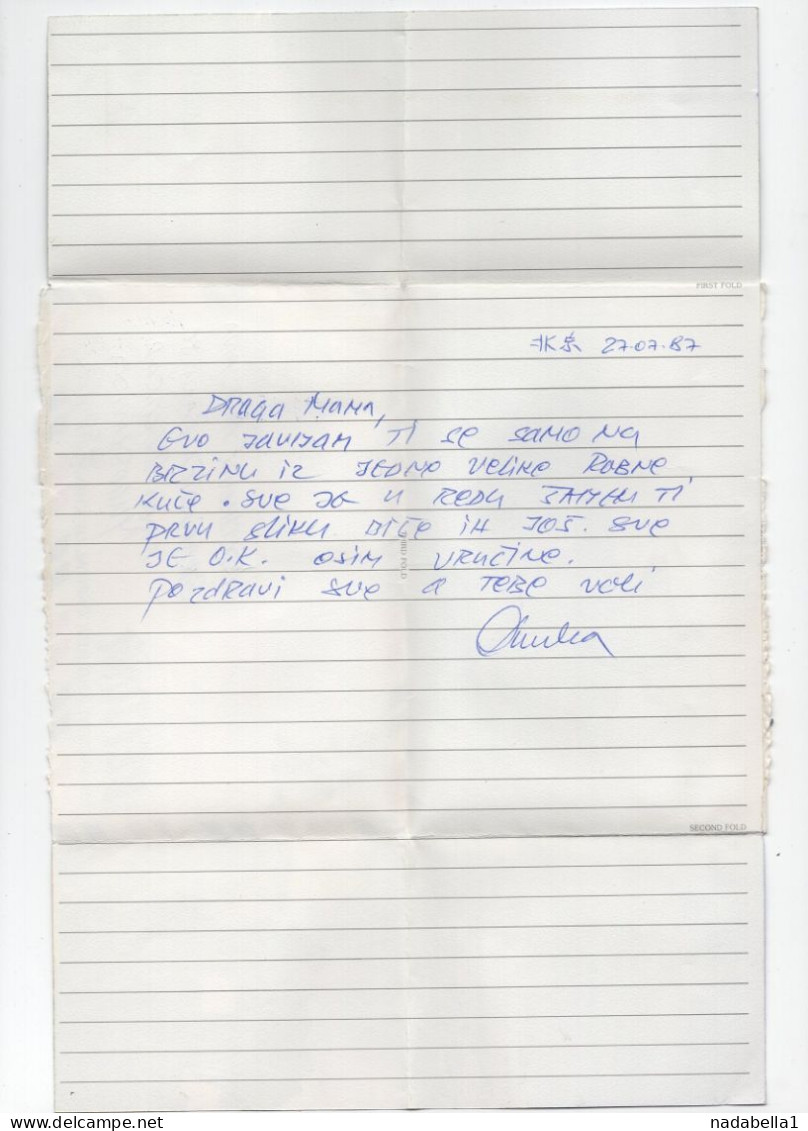 FIRST FOLD
27.07.87
Draga Mama,
Evo javljam ti se samo na
brzinu iz jedne velike robne
kuće. Sve je u redu šaljem ti
prvu sliku biće ih još. Sve
je O.K. osim vrućine.
Pozdravi sve a tebe voli
THIRD FOLD
SECOND FOLD
www.delcampe.net
nadabella1